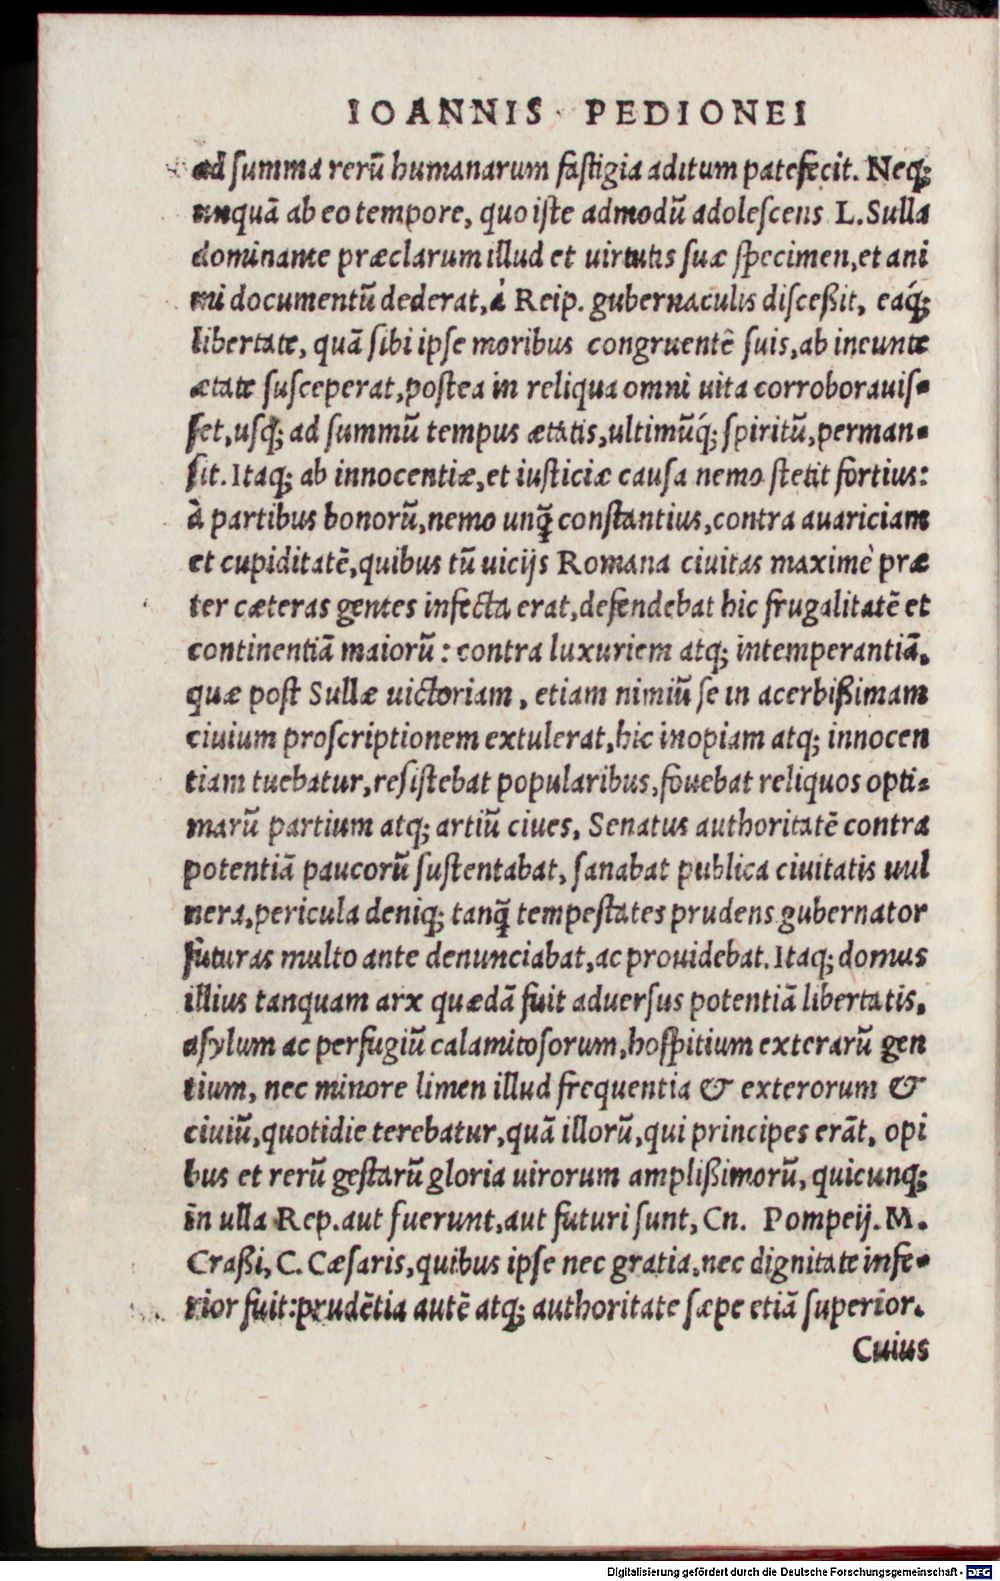 IOANNIS PEDIONEI
ad summa rerũ humanarum fastigia aditum patefecit. Neq;
unquã ab eo tempore, quo iste admodũ adolescens L. Sulla
dominante præclarum illud et uirtutis suæ specimen, et ani
mi documentũ dederat, à Reip. gubernaculis disceßit, eaq́;
libertate, quã sibi ipse moribus congruentẽ suis, ab ineunte
ætate susceperat, postea in reliqua omni uita corroborauis-
set, usq; ad summũ tempus ætatis, ultimũq́; spiritũ, perman-
sit. Itaq; ab innocentiæ, et iusticiæ causa nemo stetit fortius:
à partibus bonorũ, nemo unq̃ constantius, contra auariciam
et cupiditatẽ, quibus tũ uicijs Romana ciuitas maximè præ
ter cæteras gentes infecta erat, defendebat hic frugalitatẽ et
continentiã maiorũ: contra luxuriem atq; intemperantiã,
quæ post Sullæ uictoriam, etiam nimiũ se in acerbißimam
ciuium proscriptionem extulerat, hic inopiam atq; innocen
tiam tuebatur, resistebat popularibus, fouebat reliquos opti-
marũ partium atq; artiũ ciues, Senatus authoritatẽ contra
potentiã paucorũ sustentabat, sanabat publica ciuitatis uul
nera, pericula deniq; tanq̃ tempestates prudens gubernator
futuras multo ante denunciabat, ac prouidebat. Itaq; domus
illius tanquam arx quædã fuit aduersus potentiã libertatis,
asylum ac perfugiũ calamitosorum, hospitium exterarũ gen
tium, nec minore limen illud frequentia & exterorum &
ciuiũ, quotidie terebatur, quã illorũ, qui principes erãt, opi
bus et rerũ gestarũ gloria uirorum amplißimorũ, quicunq;
in ulla Rep. aut fuerunt, aut futuri sunt, Cn. Pompeij. M.
Craßi, C. Cæsaris, quibus ipse nec gratia, nec dignitate infe-
rior fuit: prudẽtia autẽ atq; authoritate sæpe etiã superior.
Cuius
Digitalisierung gefördert durch die Deutsche Forschungsgemeinschaft - DFG